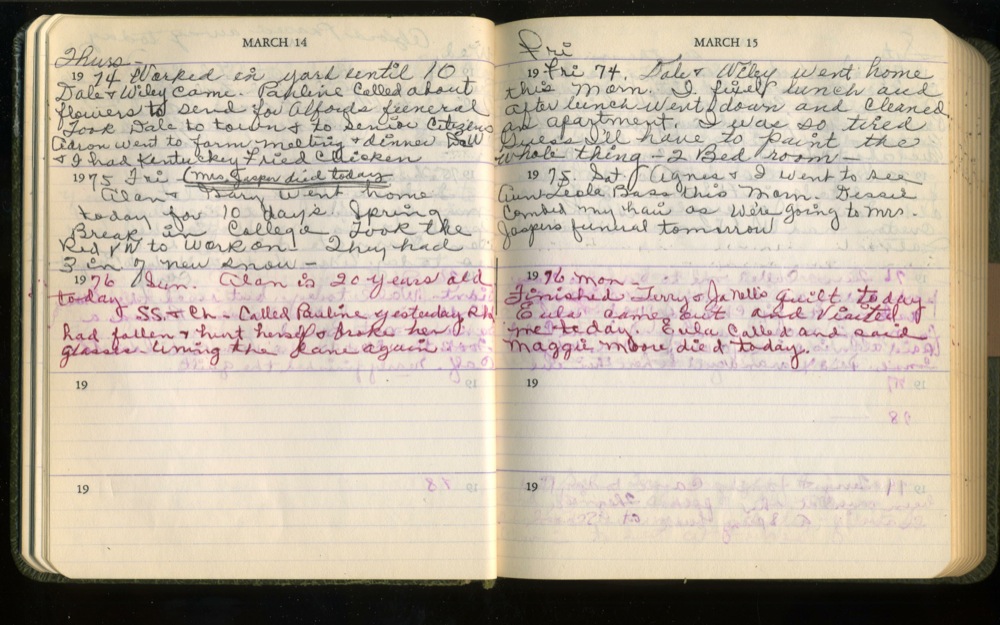 MARCH 14
Thurs -
1974 Worked in yard until 10
Dale & Wiley came. Pauline called about
flowers to send for Alfords funeral
Took Dale to town & to Senior Citizens
Aaron went to farm meeting & dinner
& I had Kentucky Fried Chicken
1975 Fri (Mrs. Jasper died today
Alan & Gary went home
today for 10 days Spring
Break in College Took the
Red VW to work on. They had
3 in 7 new snow -
1976 Sun. Alan is 20 years old
today
SS. & Ch - Called Pauline, yesterday she
had fallen & hurt herself & broke her
glasses. Using the cane again.
19
19
MARCH 15
Fri
19 Fri 74. Dale & Wiley went home
this morn. I fixed lunch and
after lunch went down and cleaned
an apartment. I was so tired
Guess I'll have to paint the
whole thing - 2 Bed room -
1975. Sat. Agnes & I went to see
Aun Leola Bass this morn. Dessie
Combed my hair as we're going to Mrs.
Jaspers funeral tomorrow
1976 Mon -
Finished Terry & Ja Nell's quilt today
Eula came out and visited
me today. Eula called and said
Maggie Moore died today.
19
19